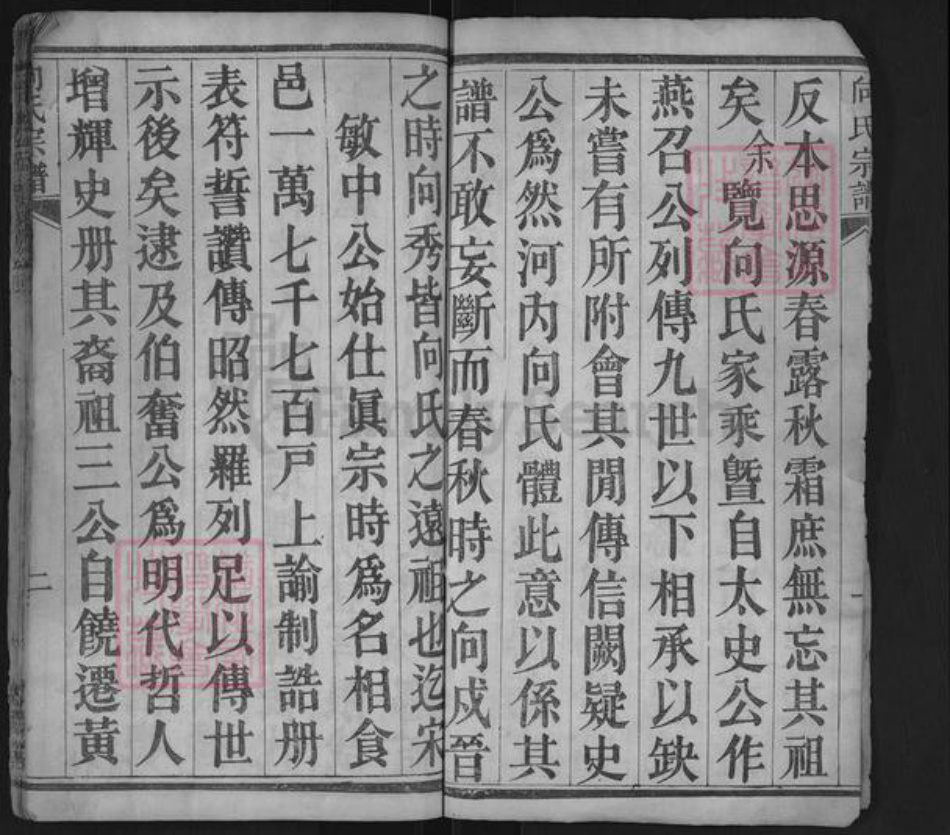 向氏宗譜
反本思源春露秋霜庶無忘其祖
矣余覽向氏家乘曁自太史公作
燕召公列傳九世以下相承以缺
未嘗有所附會其閒傳信闕疑史
公爲然河内向氏體此意以係其
譜不敢妄斷而春秋時之向戍晉
之時向秀皆向氏之遠祖也迄宋
敏中公始仕眞宗時爲名相食
邑一萬七千七百戸上諭制誥册
表符誓讚傳昭然羅列足以傳世
示後矣逮及伯奮公爲明代哲人
增輝史册其裔祖三公自饒遷黃
向氏宗譜
二